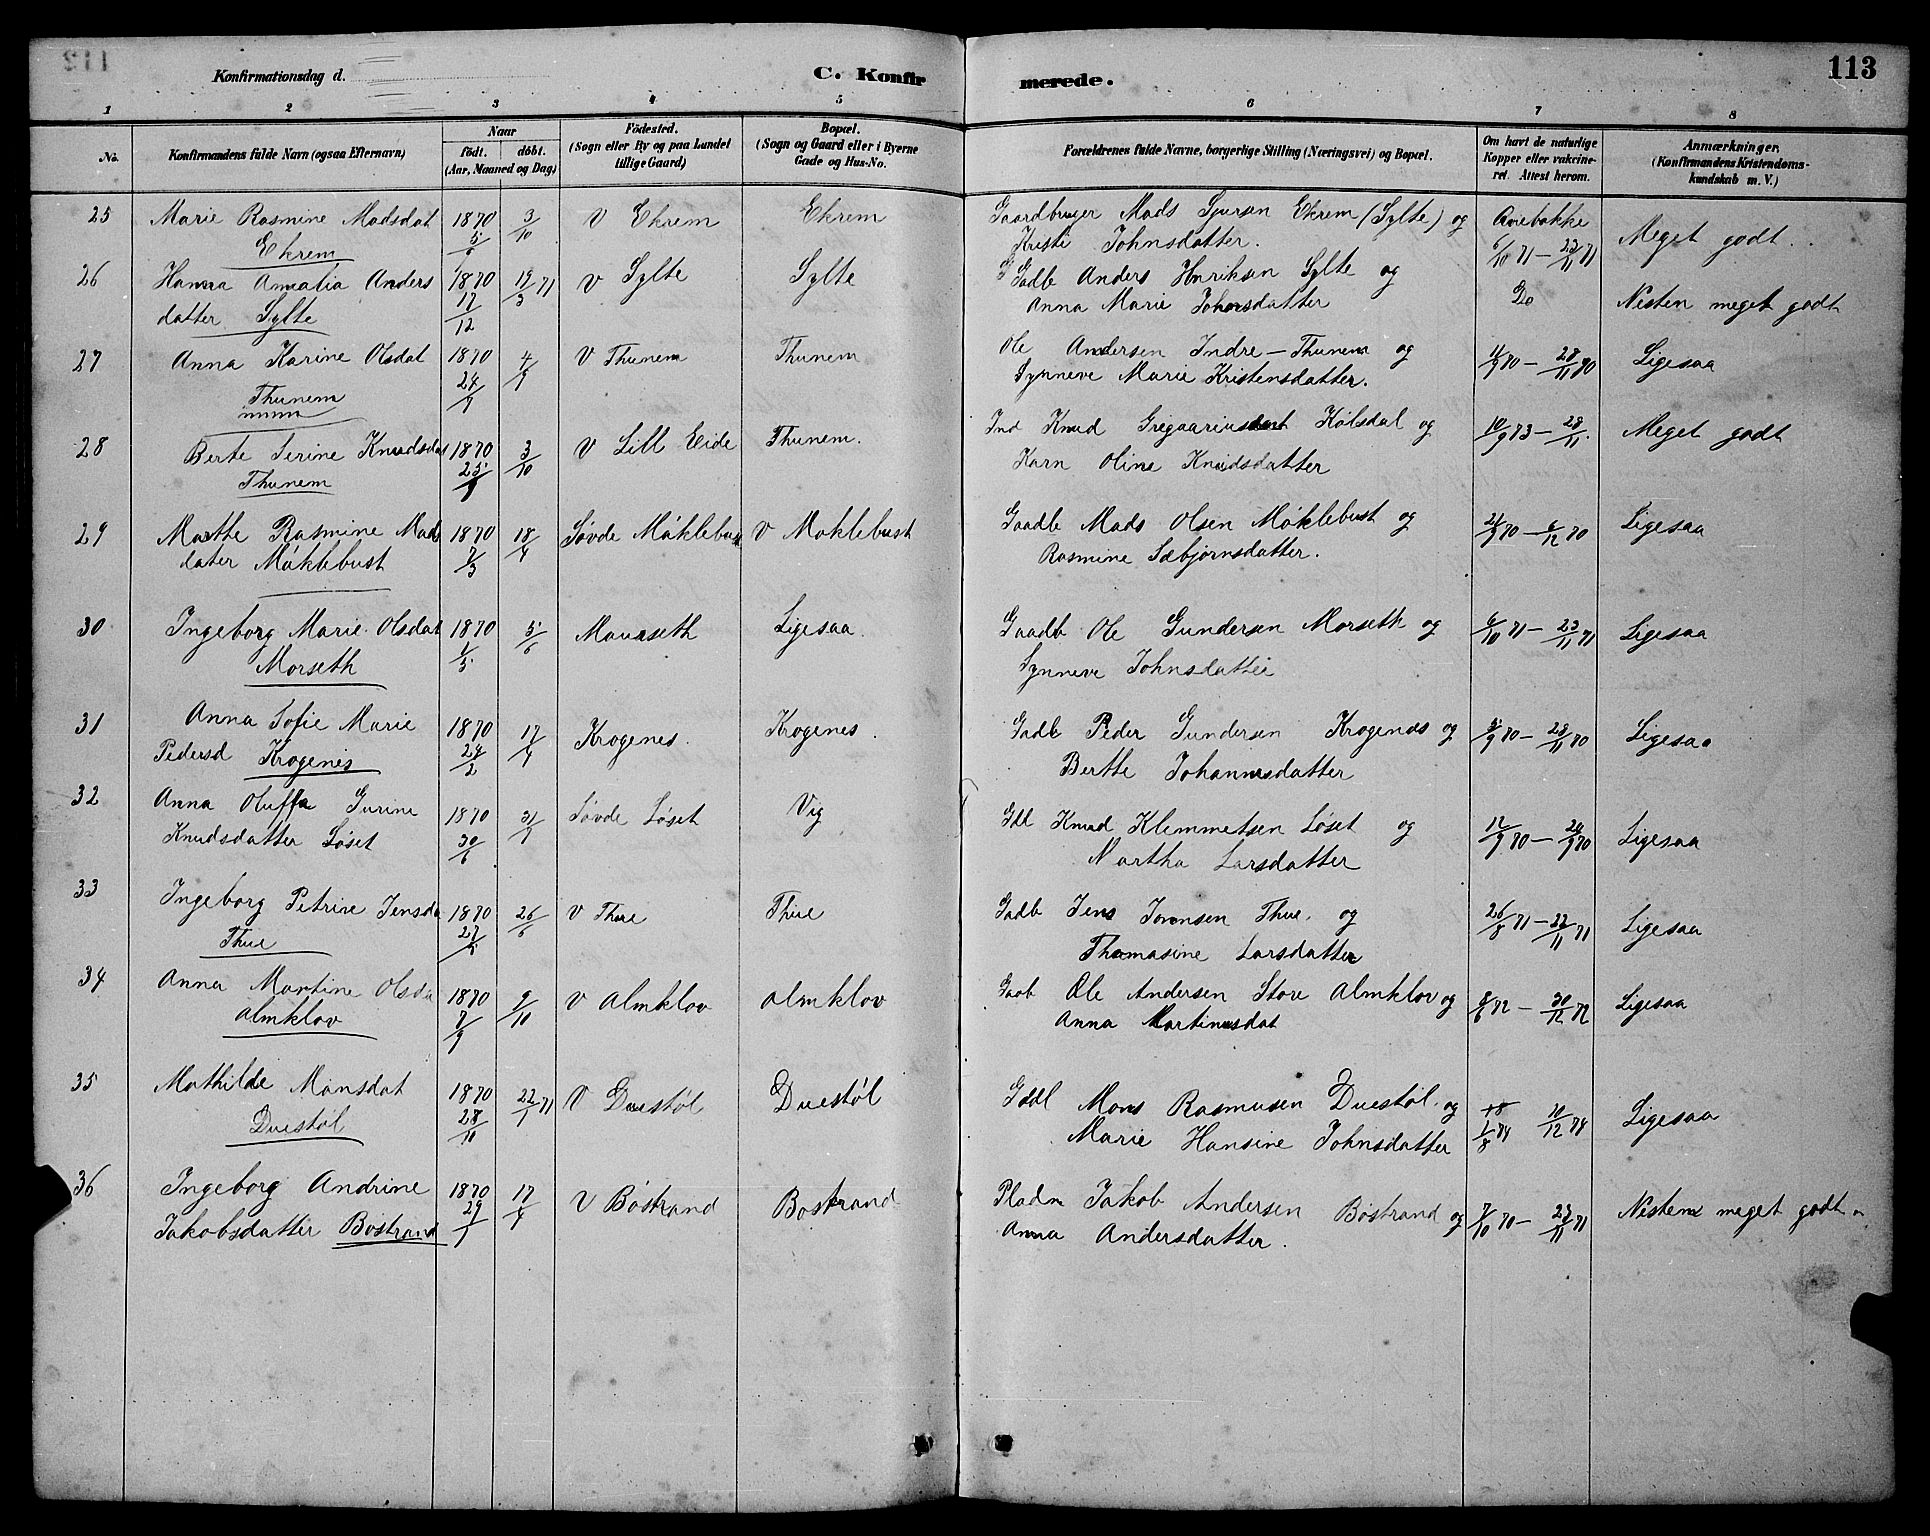 113
Konfirmationsdag d.
C. Konfirmerede.
1 2 3 4 5 6 7 8
No.
Konfirmandens fulde Navn (ogsaa Efternavn)
Naar
födt. döbt.
(Aar, Maaned og Dag)
Födested.
(Sogn eller By og paa Landet
tillige Gaard)
Bopæl.
(Sogn og Gaard eller i Byerne
Gade og Hus-No.
Forældrenes fulde Navne, borgerlige Stilling (Næringsvei) og Bopæl.
Om havt de naturlige
Kopper eller vakcine-
ret. Attest herom.
Anmærkninger.
(Konfirmandens Kristendoms-
kundskab m. V.)
25 Marie Rasmine Madsdat 1870 3/10 V Ekrem Ekrem Gaardbruger Mads Sjursen Ekrem (Sylte) og Aarebakke
Ekrem Kristi Johnsdatter. 6/10 71 – 23/11 71 Meget godt.
26 Hanna Amalia Anders 1870 19/3 71 V Sylte Sylte Gadb Anders Henriksen Sylte og Do
datter Sylte 17/12 Anna Marie Johansdatter Nesten meget godt
27 Anna Karine Olsdat 1870 4/9 V Thunem Thunem Ole Andersen Indre – Thunem og 11/9 70 – 28/11 70 Ligesaa
Thunem 24/7 Synneve Marie Kristensdatter.
28 Berte Serine Knudsdat 1870 3/10 V Lill Eide Thunem. Ind Knud Gregaarius Kølsdal og 10/9 73 – 28/11. Meget godt
Thunem Karn Oline Knudsdatter
29 Marthe Rasmine Mads 1870 18/4 Søvde Möklebust V Moklebust Gaadb Mads Olsen Möklebust og 21/9 70 – 6/12 70 Ligesaa
dater Möklebust 7/3 Rasmine Sæbjørnsdatter.
30 Ingeborg Marie Olsdat 1870 5/6 Maurseth Ligesaa. Gaadb Ole Gundersen Morseth og 6/10 71 – 23/11 71 Ligesaa
Morseth 1/5 Synneve Johnsdatter
31 Anna Sofie Marie 1870 17/4 Krogenes. Krogenes. Gadb Peder Gundersen Krogenes og 5/9 70 – 28/11 70 Ligesaa
Pedersd Krogenes 24/2 Berthe Johannesdatter
32 Anna Oluffa Gurine 1870 31/7 Søvde Løset Vig Gdb Knud Klemmetsen Løset og 12/9 70 – 24/9 70 Ligesaa
Knudsdatter Løset 30/6 Martha Larsdatter
33 Ingeborg Petrine Jensda 1870 26/6 V Thue Thue Gadb Jens Jensen Thue. og 26/8 71 – 22/11 71 Ligesaa
Thue Thomasine Larsdatter
34 Anna Martine Olsda 1870 9/10 V Almklov Almklov Gaab Ole Andersen Store Almklov og 8/6 72 – 30/12 72 Ligesaa
Almklov 7/9 Anna Martinusdat
35 Mathilde Monsdat 1870 22/1 71 V Duestøl Duestøl Gdbl Mons Rasmusen Duestøl. og 1/8 74 10/12 74 Ligesaa
Duestøl 28/11 Marie Hansine Johnsdatter
36 Ingeborg Andrine 1870 17/4 V Böstrand Bostrand Pladm Jakob Andersen Bostrand og 7/10 70 – 23/11 71 Nesten meget godt
Jakobsdatter Bostrand 29/1 Anna Andersdatter.